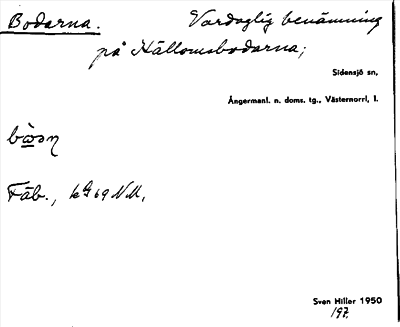 Bodarna. Vardaglig benämning
på Hällomsbodarna;
Sidensjö sn,
Ångermanl. n. doms. tg., Västernorrl, l.
Fäb.,
Sven Hiller 1950
197